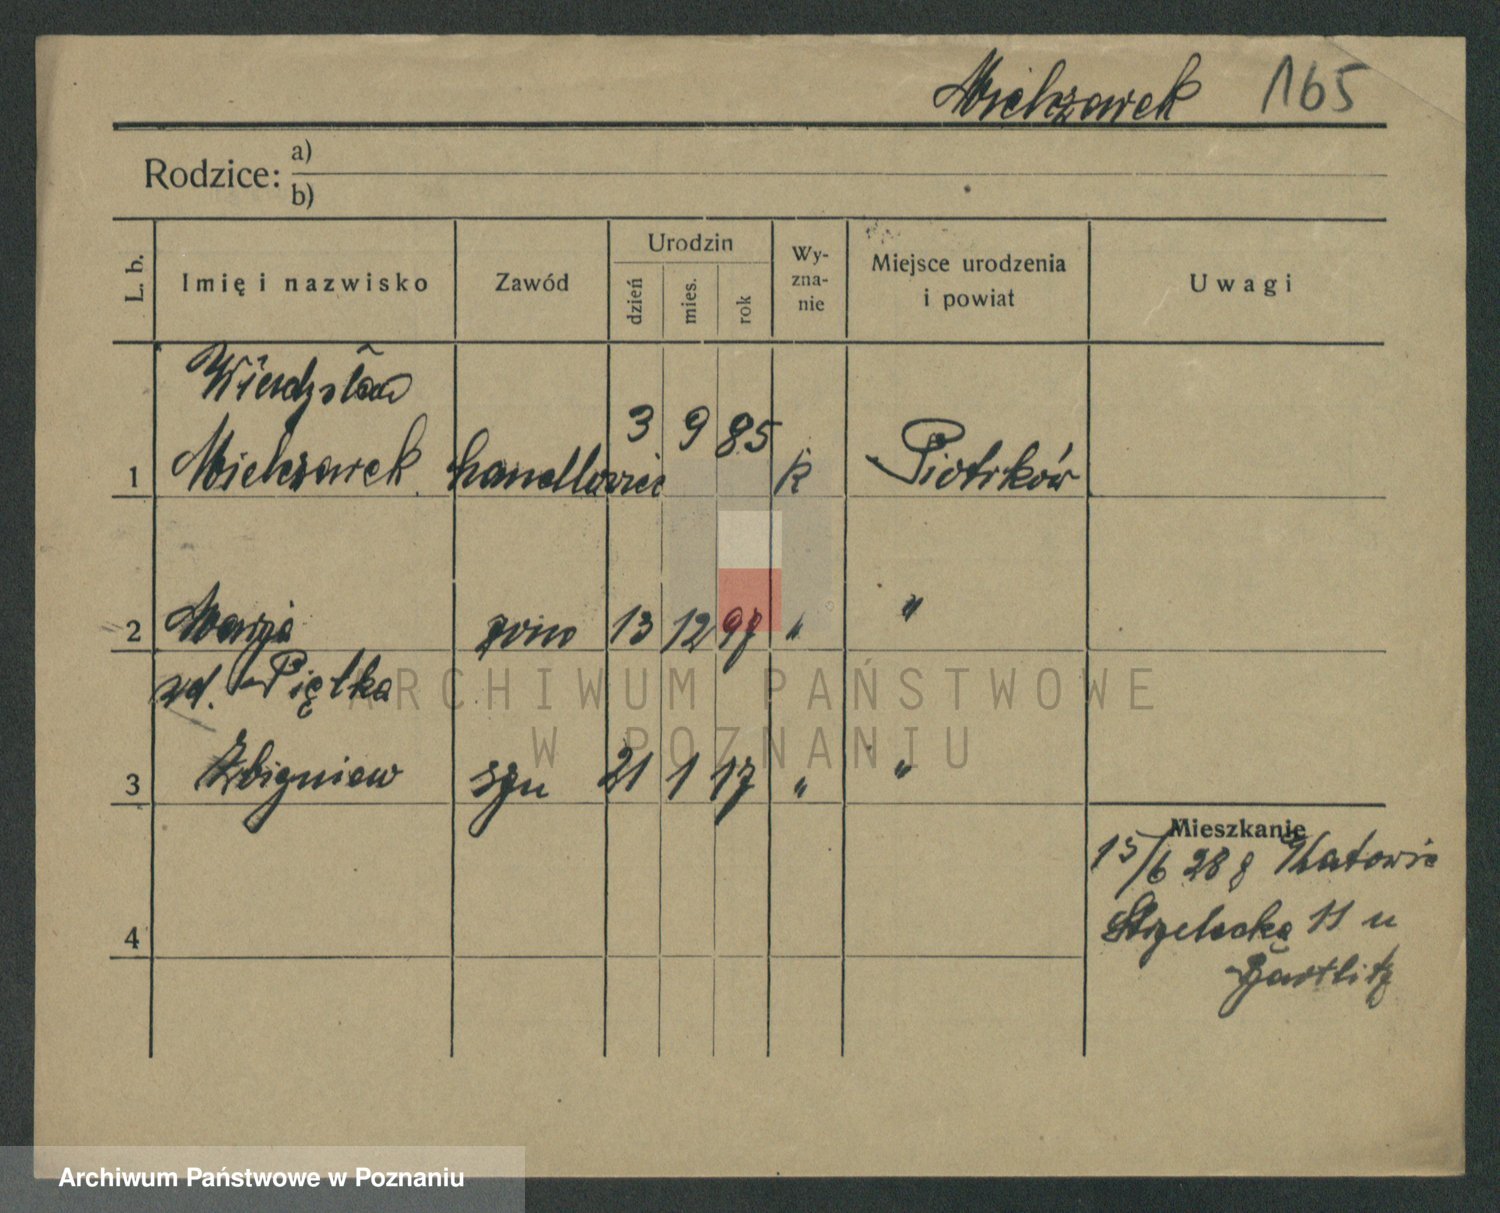 Mielczarek 165
Rodzice: a)
b)
L. b. Imię i nazwisko Zawód Urodzin dzień mies. rok Wy-zna-nie Miejsce urodzenia i powiat Uwagi
Mielczarek
1 3 9 85 k Piotrków
2 Marja żona 13 12 97 " "
zd. Piętka
3 Zbigniew syn 21 1 17 " "
Mieszkanie
15/6 28
4 Strzelecka 11 u
ARCHIWUM PAŃSTWOWE
W POZNANIU
Archiwum Państwowe w Poznaniu